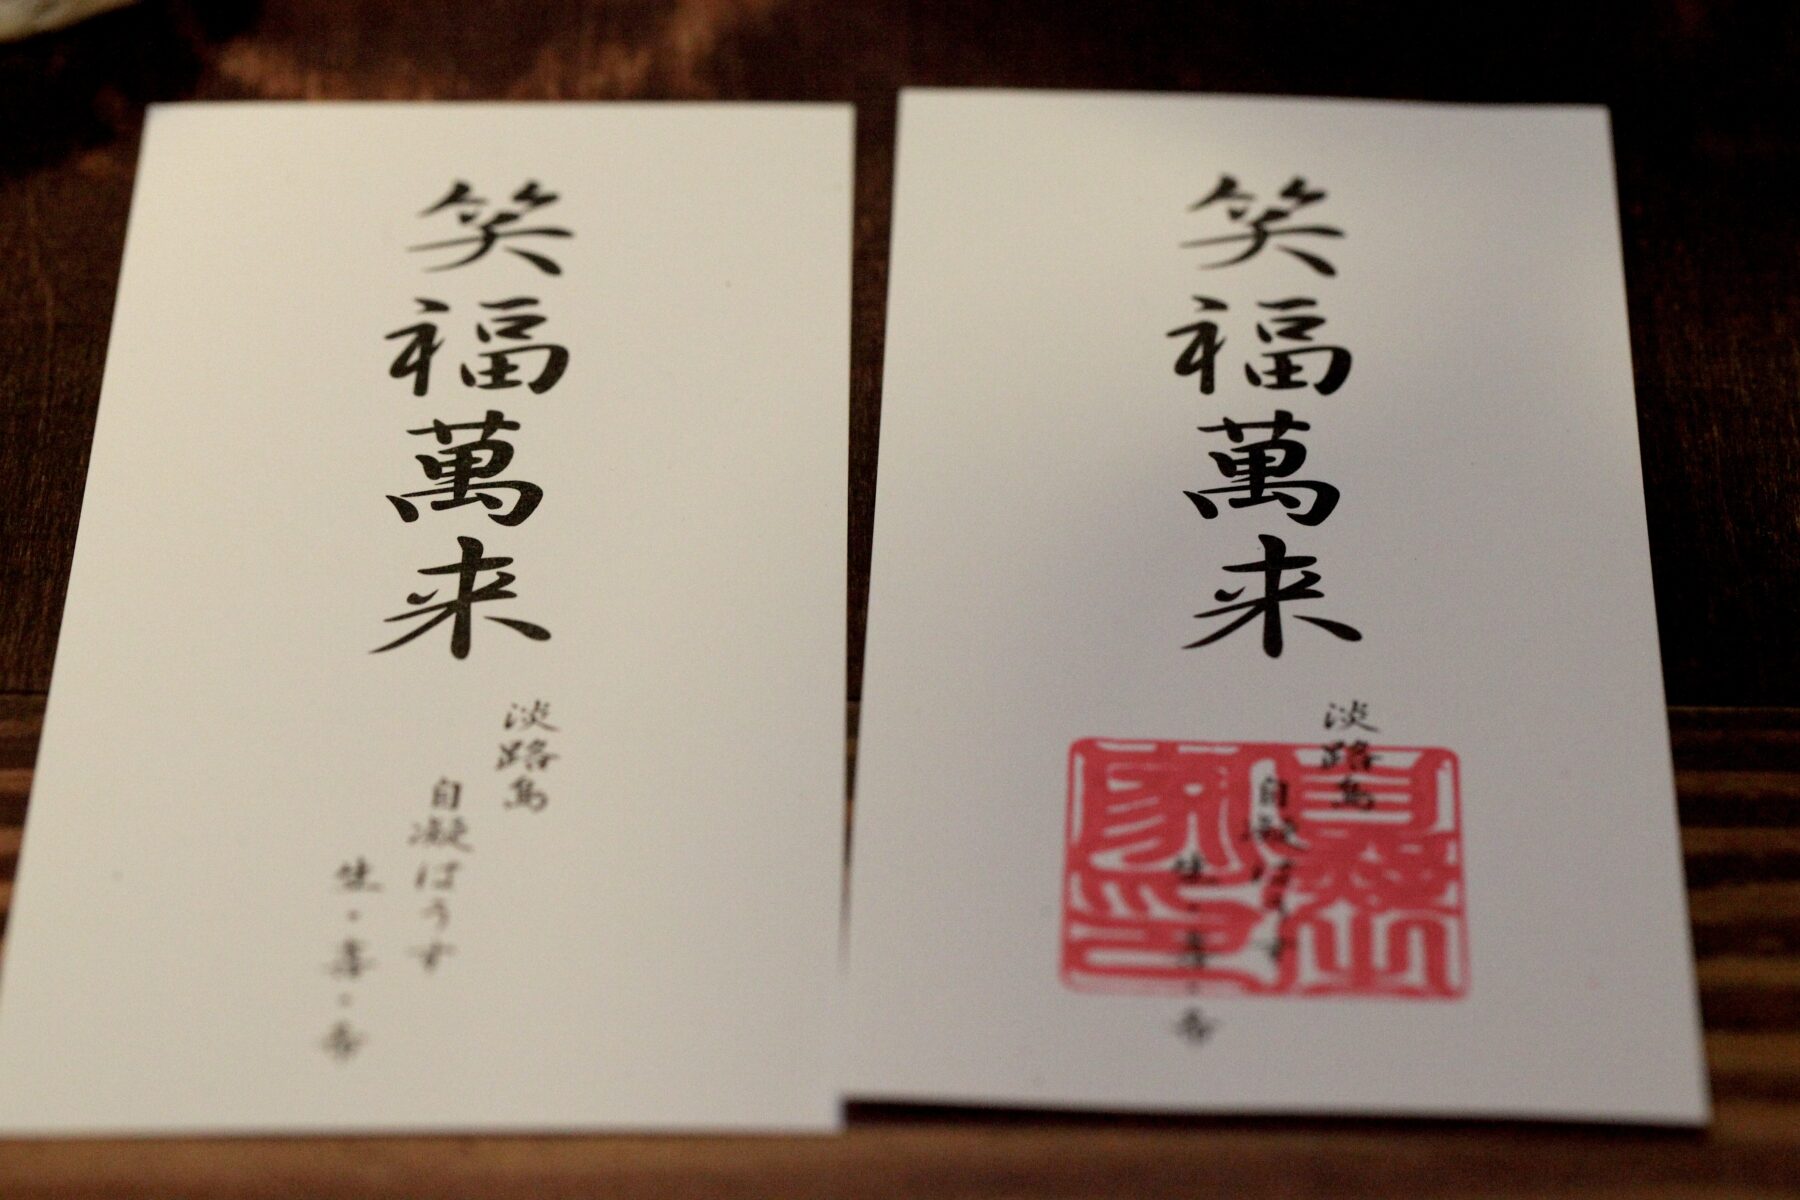 笑福萬来
淡路島
自凝はうす
生・喜・香
笑福萬来
淡路島
自凝はうす
生・喜・香